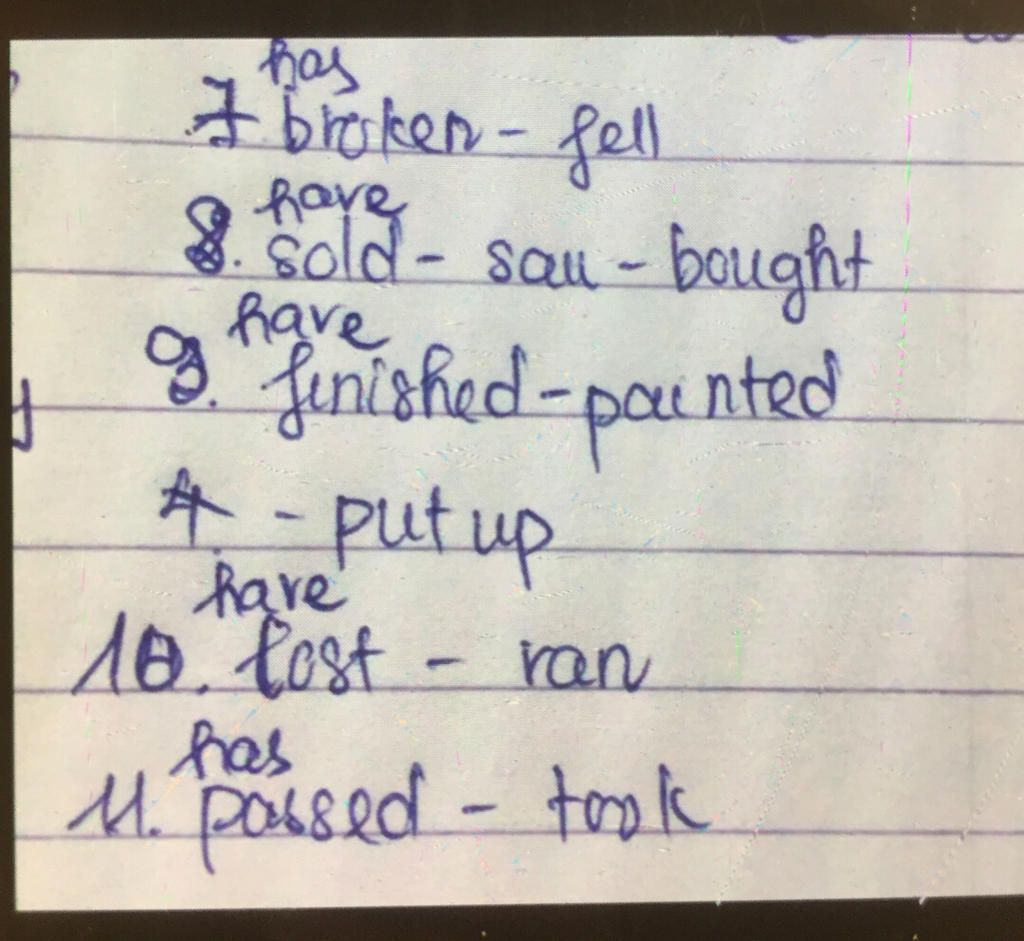 has
7 broken - fell
have
8. sold - sau - bought
have
9. finished - painted
4. - put up
have
10. lost - ran
has
11. passed - took